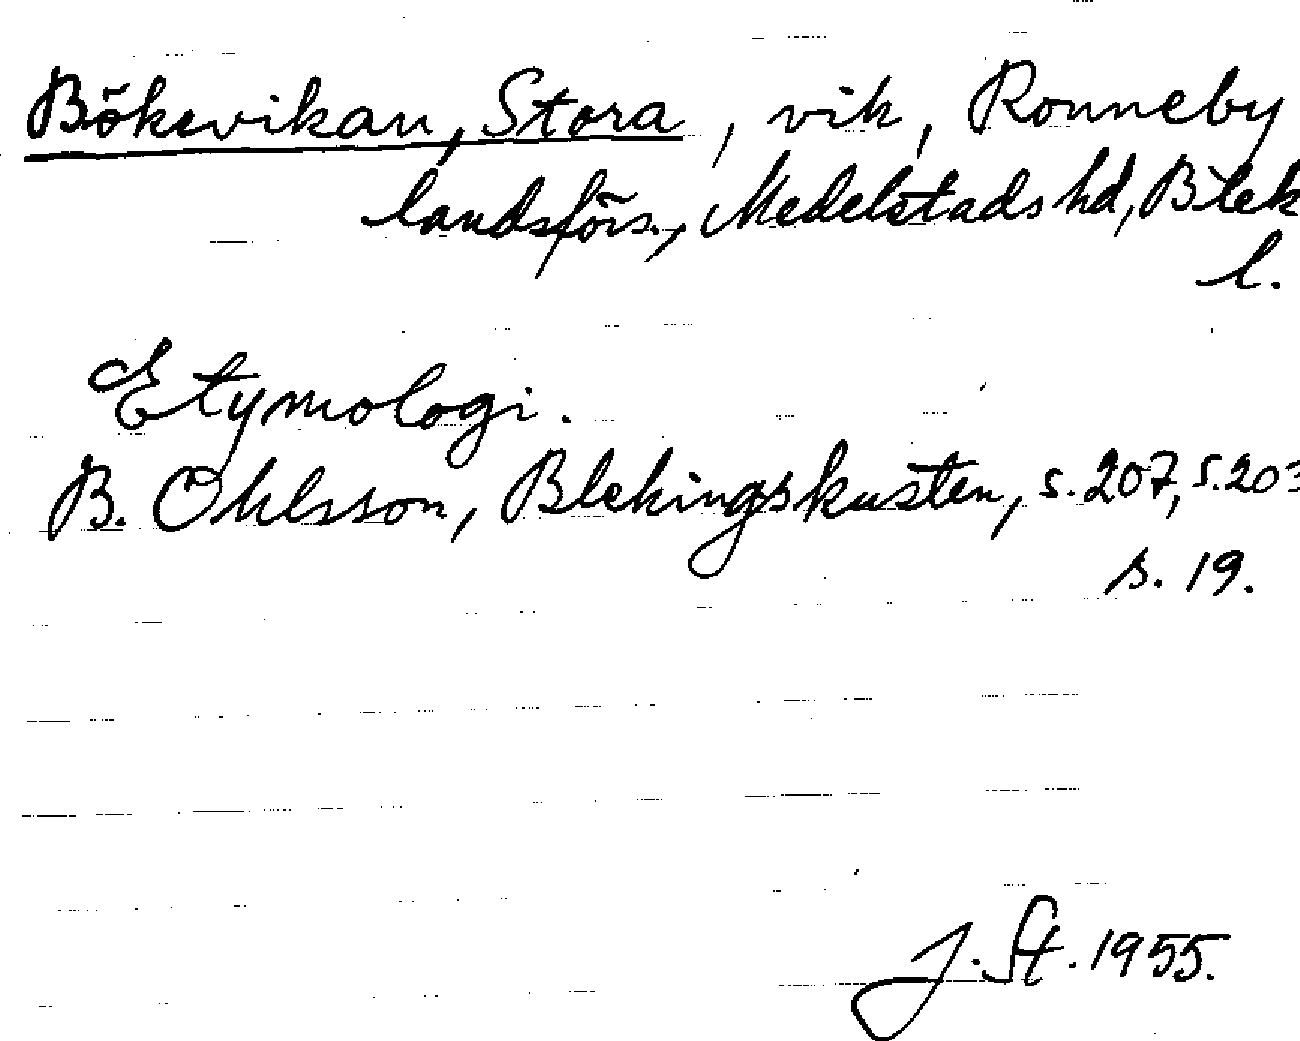 Bökevikan, Stora, vik, Ronneby
landsförs., Medelstads hd, Blek
l.
Etymologi.
B. Ohlsson, Blekingskusten, s. 207, s. 203
s. 19.
J. St. 1955.